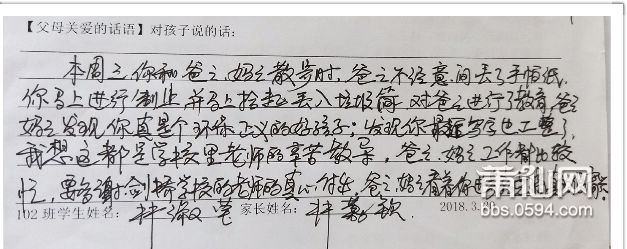 【父母关爱的话语】对孩子说的话:
本周三,你和爸爸、妈妈散步时,爸爸不经意间丢了手帕纸,
你马上进行制止,并马上捡起丢入垃圾筒,对爸爸进行了教育,爸爸
妈妈发现你真是个环保正义的好孩子;发现你最近写字也工整了,
我想这都是学校里老师的辛苦教导。爸爸、妈妈工作都比较
忙,要感谢剑桥学校的老师的真心付出,爸爸妈妈看着你
102 班学生姓名: 林 莹 家长姓名: 林 2018.3.30
莆仙网
bbs.0594.com